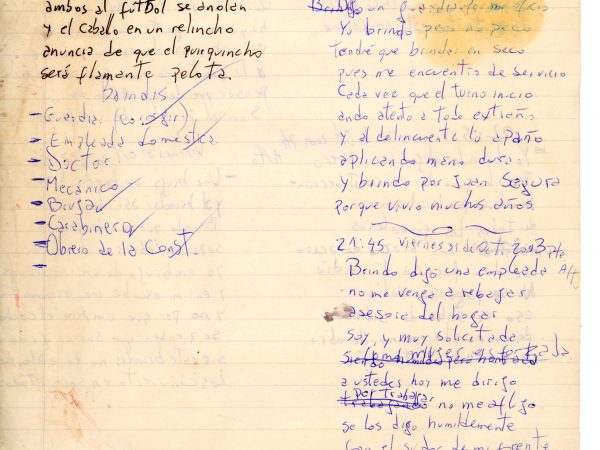 ambos al fútbol se anotan
y el caballo en un relincho
anuncia de que el quirquincho
será flamante pelota.
Brindis
- Guardia
- Empleada domestica
- Doctor
- Mecánico
- Bruja
- Carabinero
- Obrero de la Const.
Brindo un
Yo brindo pero no poco
Tendré que brindar en seco
pues me encuentro de servicio
Cada vez que el turno inicio
ando atento a todo extraño
Y al delincuente lo apaño
aplicando mano dura
Y brindo por Juan Segura
Porque vivio muchos años.
21:45 Viernes 31 de Oct. 2003 Pte Alto
Brindo digo una empleada
no me venga a rebajar
asesora del hogar
Soy, y muy solicitada
como mujer esforzada
Siendo humilde pero honrada
a ustedes hoy me dirijo
por trabajar
trabajando no me aflijo
se los digo humildemente
Con el sudor de mi frente